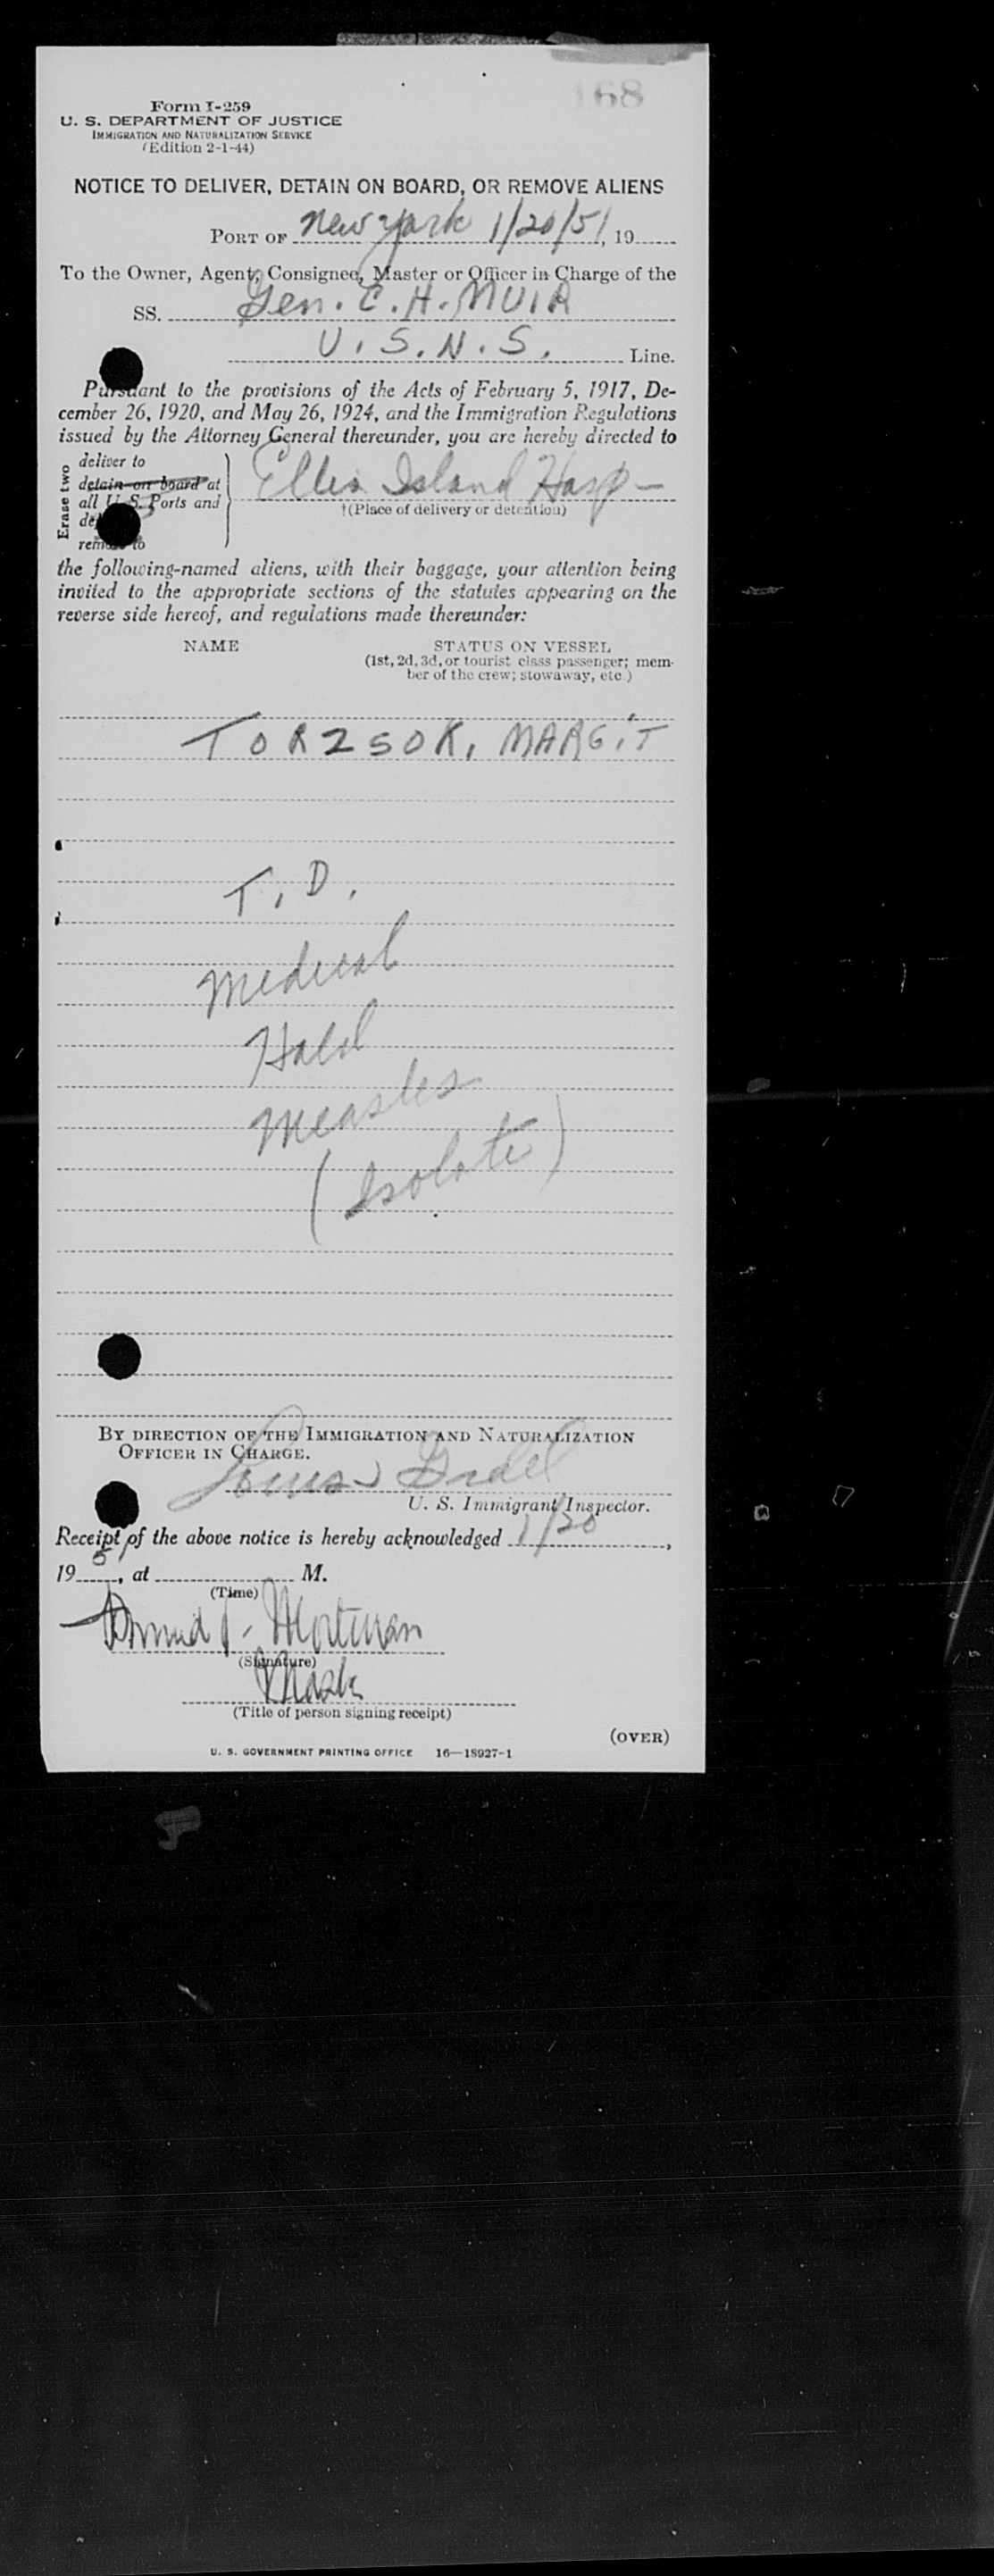 168
Form I-259
U. S. DEPARTMENT OF JUSTICE
IMMIGRATION AND NATURALIZATION SERVICE
(Edition 2-1-44)
NOTICE TO DELIVER, DETAIN ON BOARD, OR REMOVE ALIENS
PORT OF New York 1/20/51, 19
To the Owner, Agent, Consignee, Master or Officer in Charge of the
SS. Gen. C. H. MUIR
U. S. N. S. Line.
Pursuant to the provisions of the Acts of February 5, 1917, De-
cember 26, 1920, and May 26, 1924, and the Immigration Regulations
issued by the Attorney General thereunder, you are hereby directed to
Erase two
deliver to
detain on board at
all U. S. Ports and
remove to
Ellis Island Hosp-
†(Place of delivery or detention)
the following-named aliens, with their baggage, your attention being
invited to the appropriate sections of the statutes appearing on the
reverse side hereof, and regulations made thereunder:
NAME STATUS ON VESSEL
(1st, 2d, 3d, or tourist class passenger; mem-
ber of the crew; stowaway, etc.)
TORZSOK, MARGIT
T. D.
Medical
Hold
Measles
(Isolate)
BY DIRECTION OF THE IMMIGRATION AND NATURALIZATION
OFFICER IN CHARGE.
Louis
U. S. Immigrant Inspector.
Receipt of the above notice is hereby acknowledged 1/20,
1951, at M.
(Time)
(Signature)
(Title of person signing receipt)
(OVER)
U. S. GOVERNMENT PRINTING OFFICE 16—18927-1